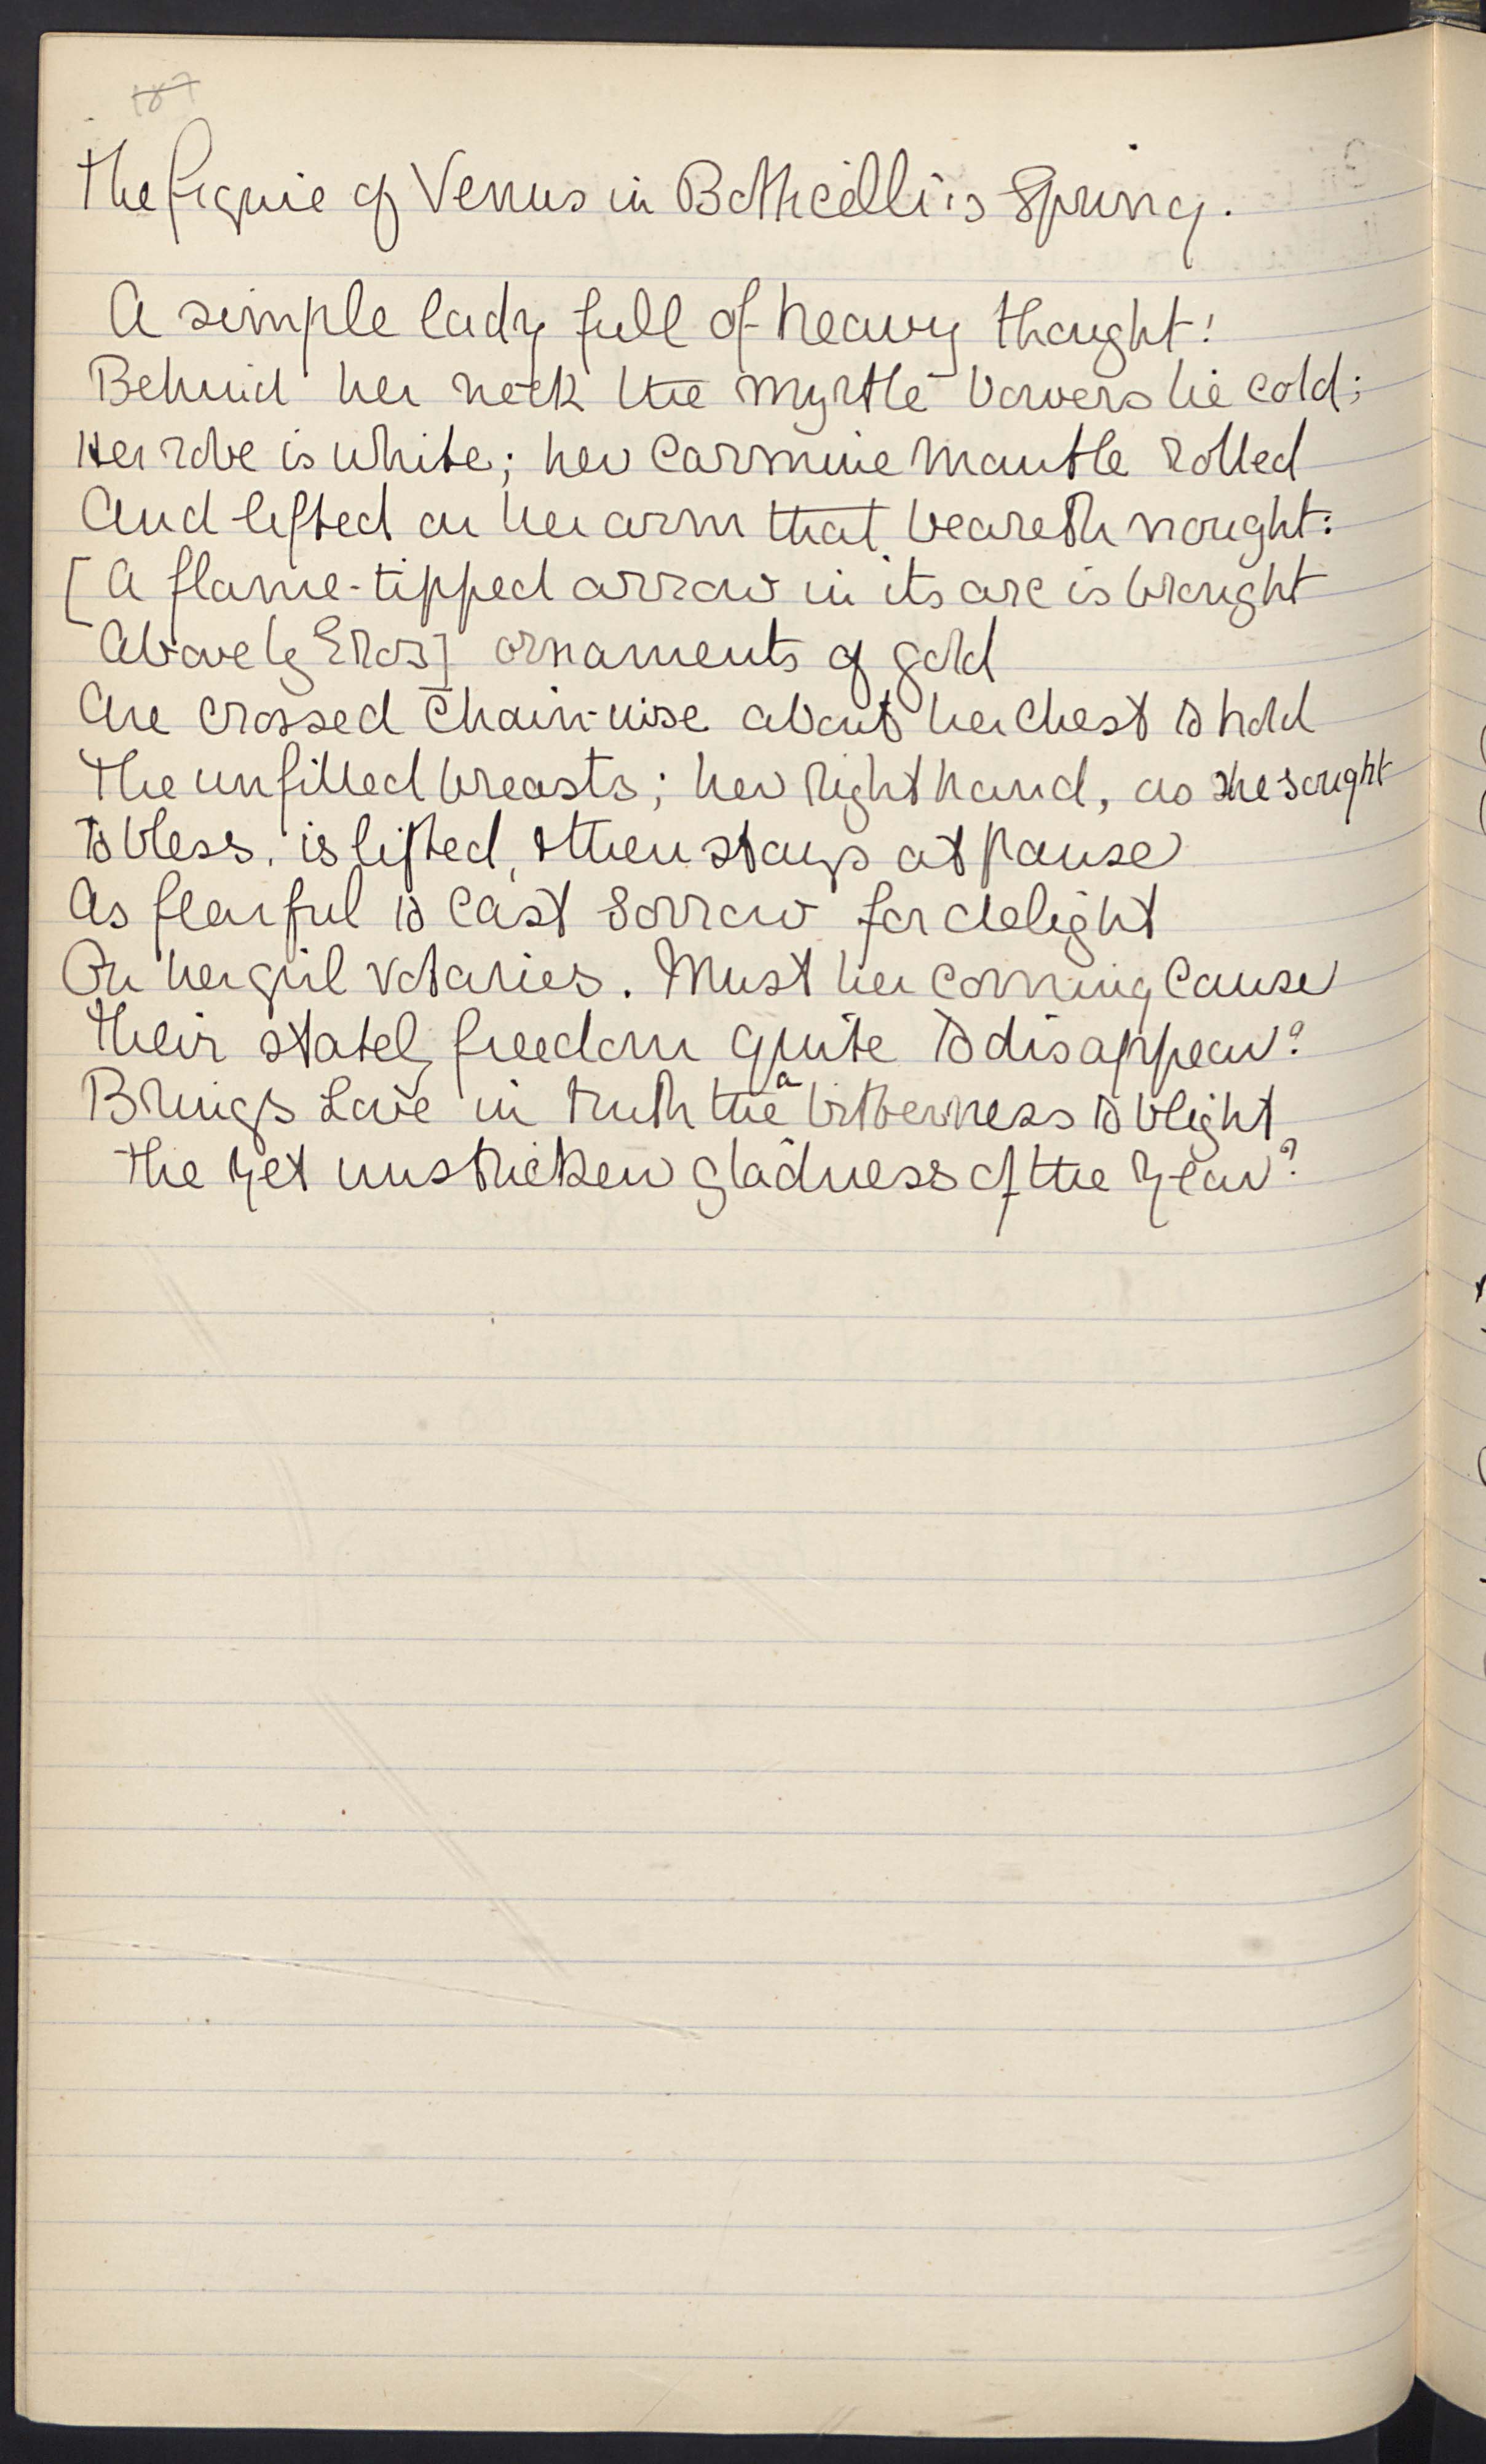 187
The figure of Venus in Botticelli's Spring.
A simple lady full of heavy thought!
Behind her neck the myrtle bowers lie cold;
Her robe is white; her carmine mantle rolled
And lifted on her arm that beareth nought:
[A flame-tipped arrow in its arc is brought
Above by Eros] ornaments of gold
Are crossed chain-wise about her chest to hold
The unfilled breasts; her right hand, as she sought
To bless, is lifted, & then stays at pause
As fearful to cast sorrow for delight
On her girl votaries. Must her coming cause
Their stately freedom quite to disappear?
Brings Love in truth the a bitterness to blight
The yet unstricken gladness of the year?